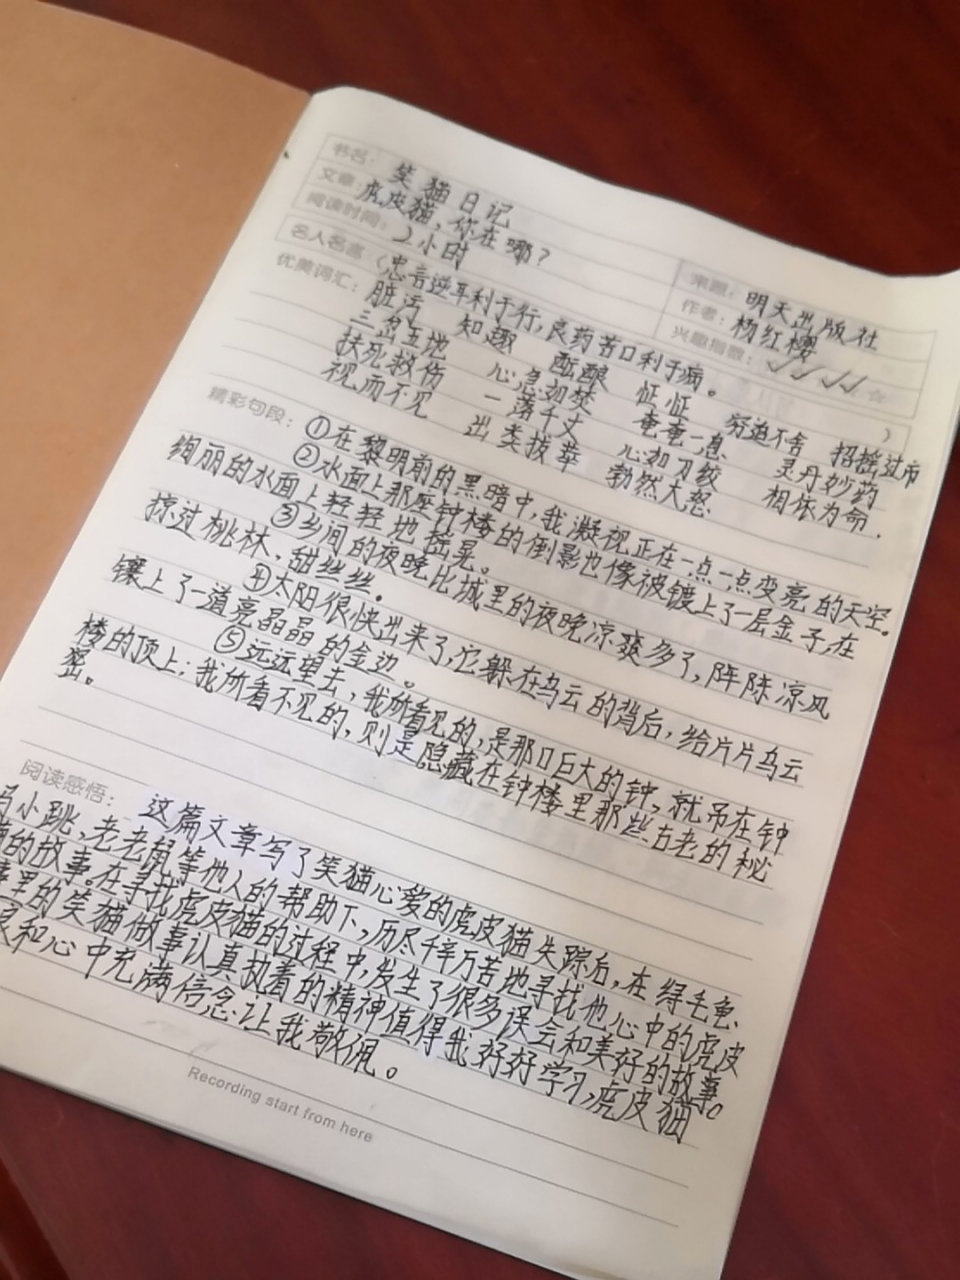 书名：笑猫日记
文章：虎皮猫，你在哪？ 来源：明天出版社
阅读时间：2小时 作者：杨红樱
名人名言（忠言逆耳利于行，良药苦口利于病。） 兴趣指数：✓✓✓✓☆
优美词汇：脏污 知趣 酝酿 怔怔 穷追不舍 招摇过市
三岔五地 心急如焚 奄奄一息 灵丹妙药
扶死救伤 一落千丈 心如刀绞 相依为命.
视而不见 出类拔萃 勃然大怒
精彩句段：①在黎明前的黑暗中，我凝视正在一点一点变亮的天空。
②水面上那座钟楼的倒影也像被镀上了一层金子，在
绚丽的水面上轻轻地摇晃。
③乡间的夜晚比城里的夜晚凉爽多了，阵阵凉风
掠过桃林，甜丝丝。
④太阳很快出来了，它躲在乌云的背后，给片片乌云
镶上了一道亮晶晶的金边。
⑤远远望去，我所看见的，是那口巨大的钟，就吊在钟
楼的顶上；我所看不见的，则是隐藏在钟楼里那些古老的秘
密。
阅读感悟：这篇文章写了笑猫心爱的虎皮猫失踪后，在绿毛龟
马小跳，老老鼠等他人的帮助下，历尽千辛万苦地寻找他心中的虎皮
的故事。在寻找虎皮猫的过程中，发生了很多误会和美好的故事。
里的笑猫做事认真执着的精神值得我好好学习，虎皮猫
和心中充满信念让我敬佩。
Recording start from here